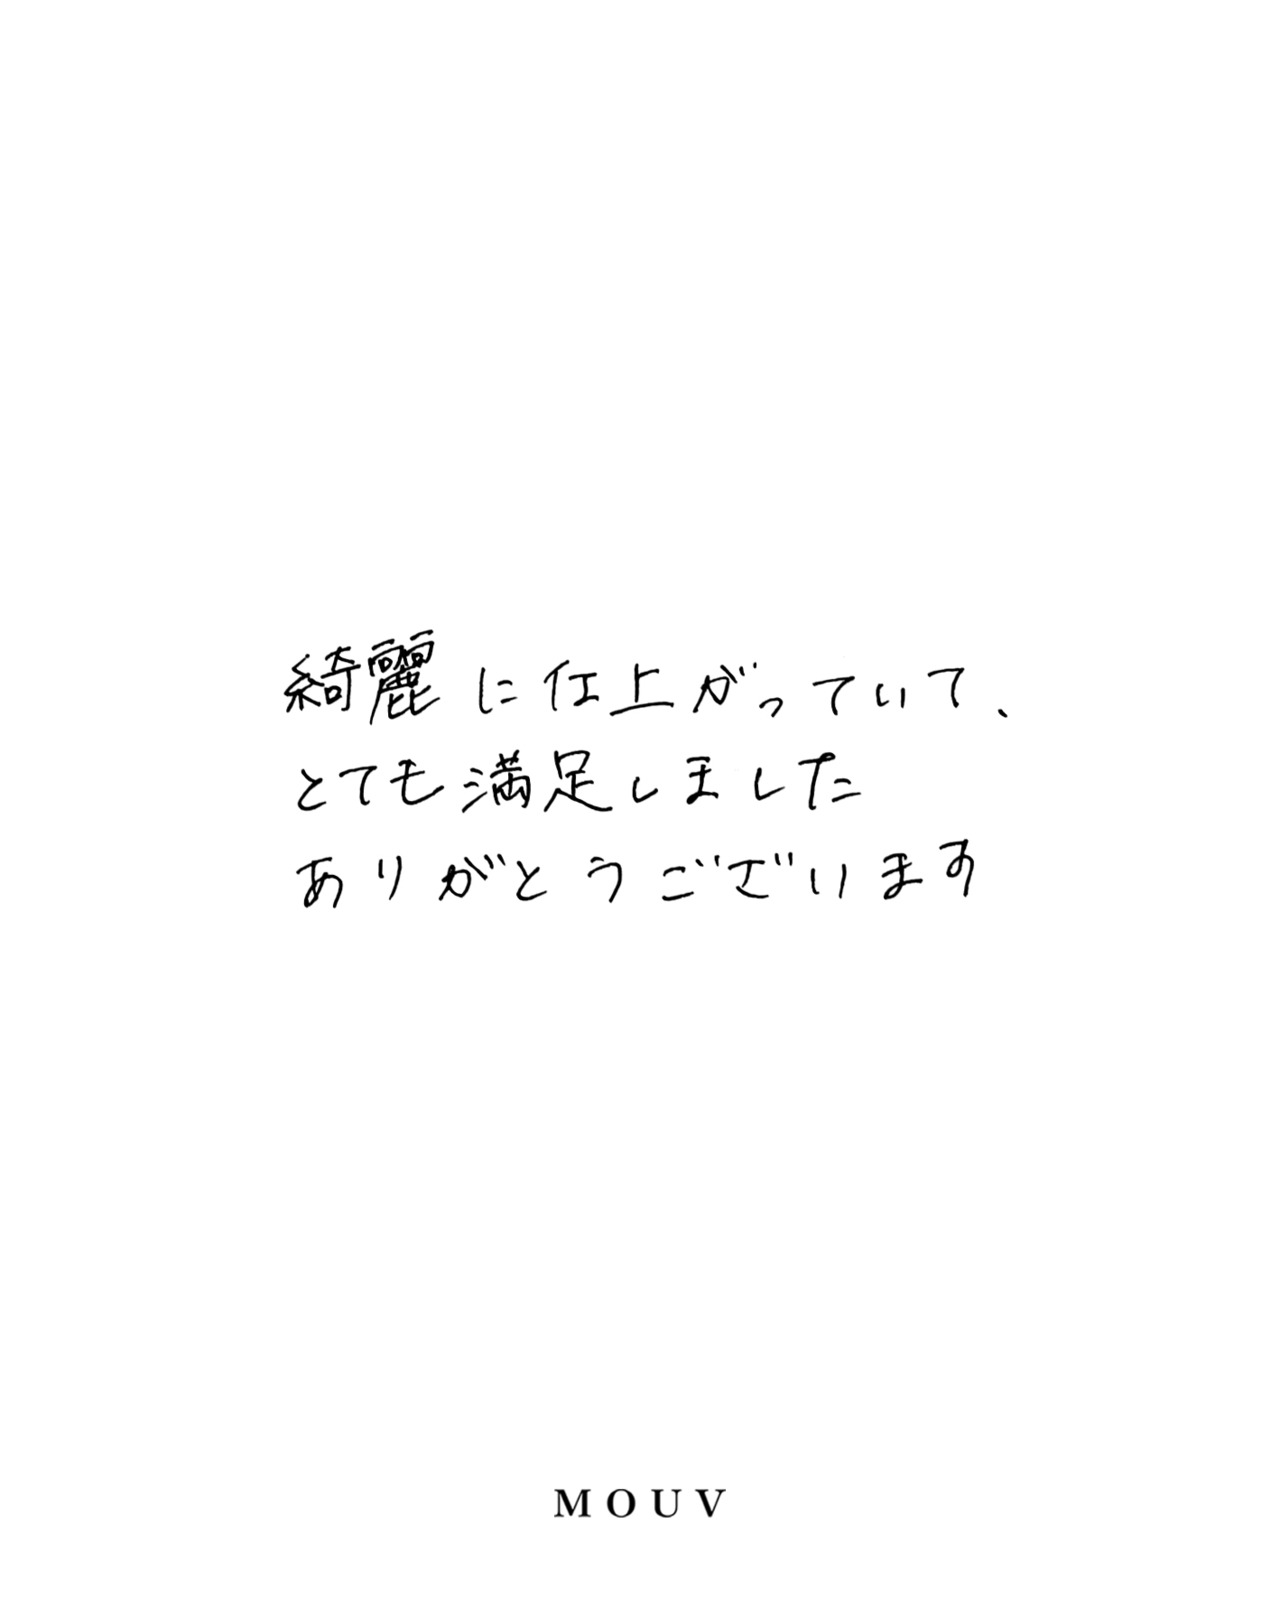 綺麗に仕上がっていて、
とても満足しました
ありがとうございます
MOUV